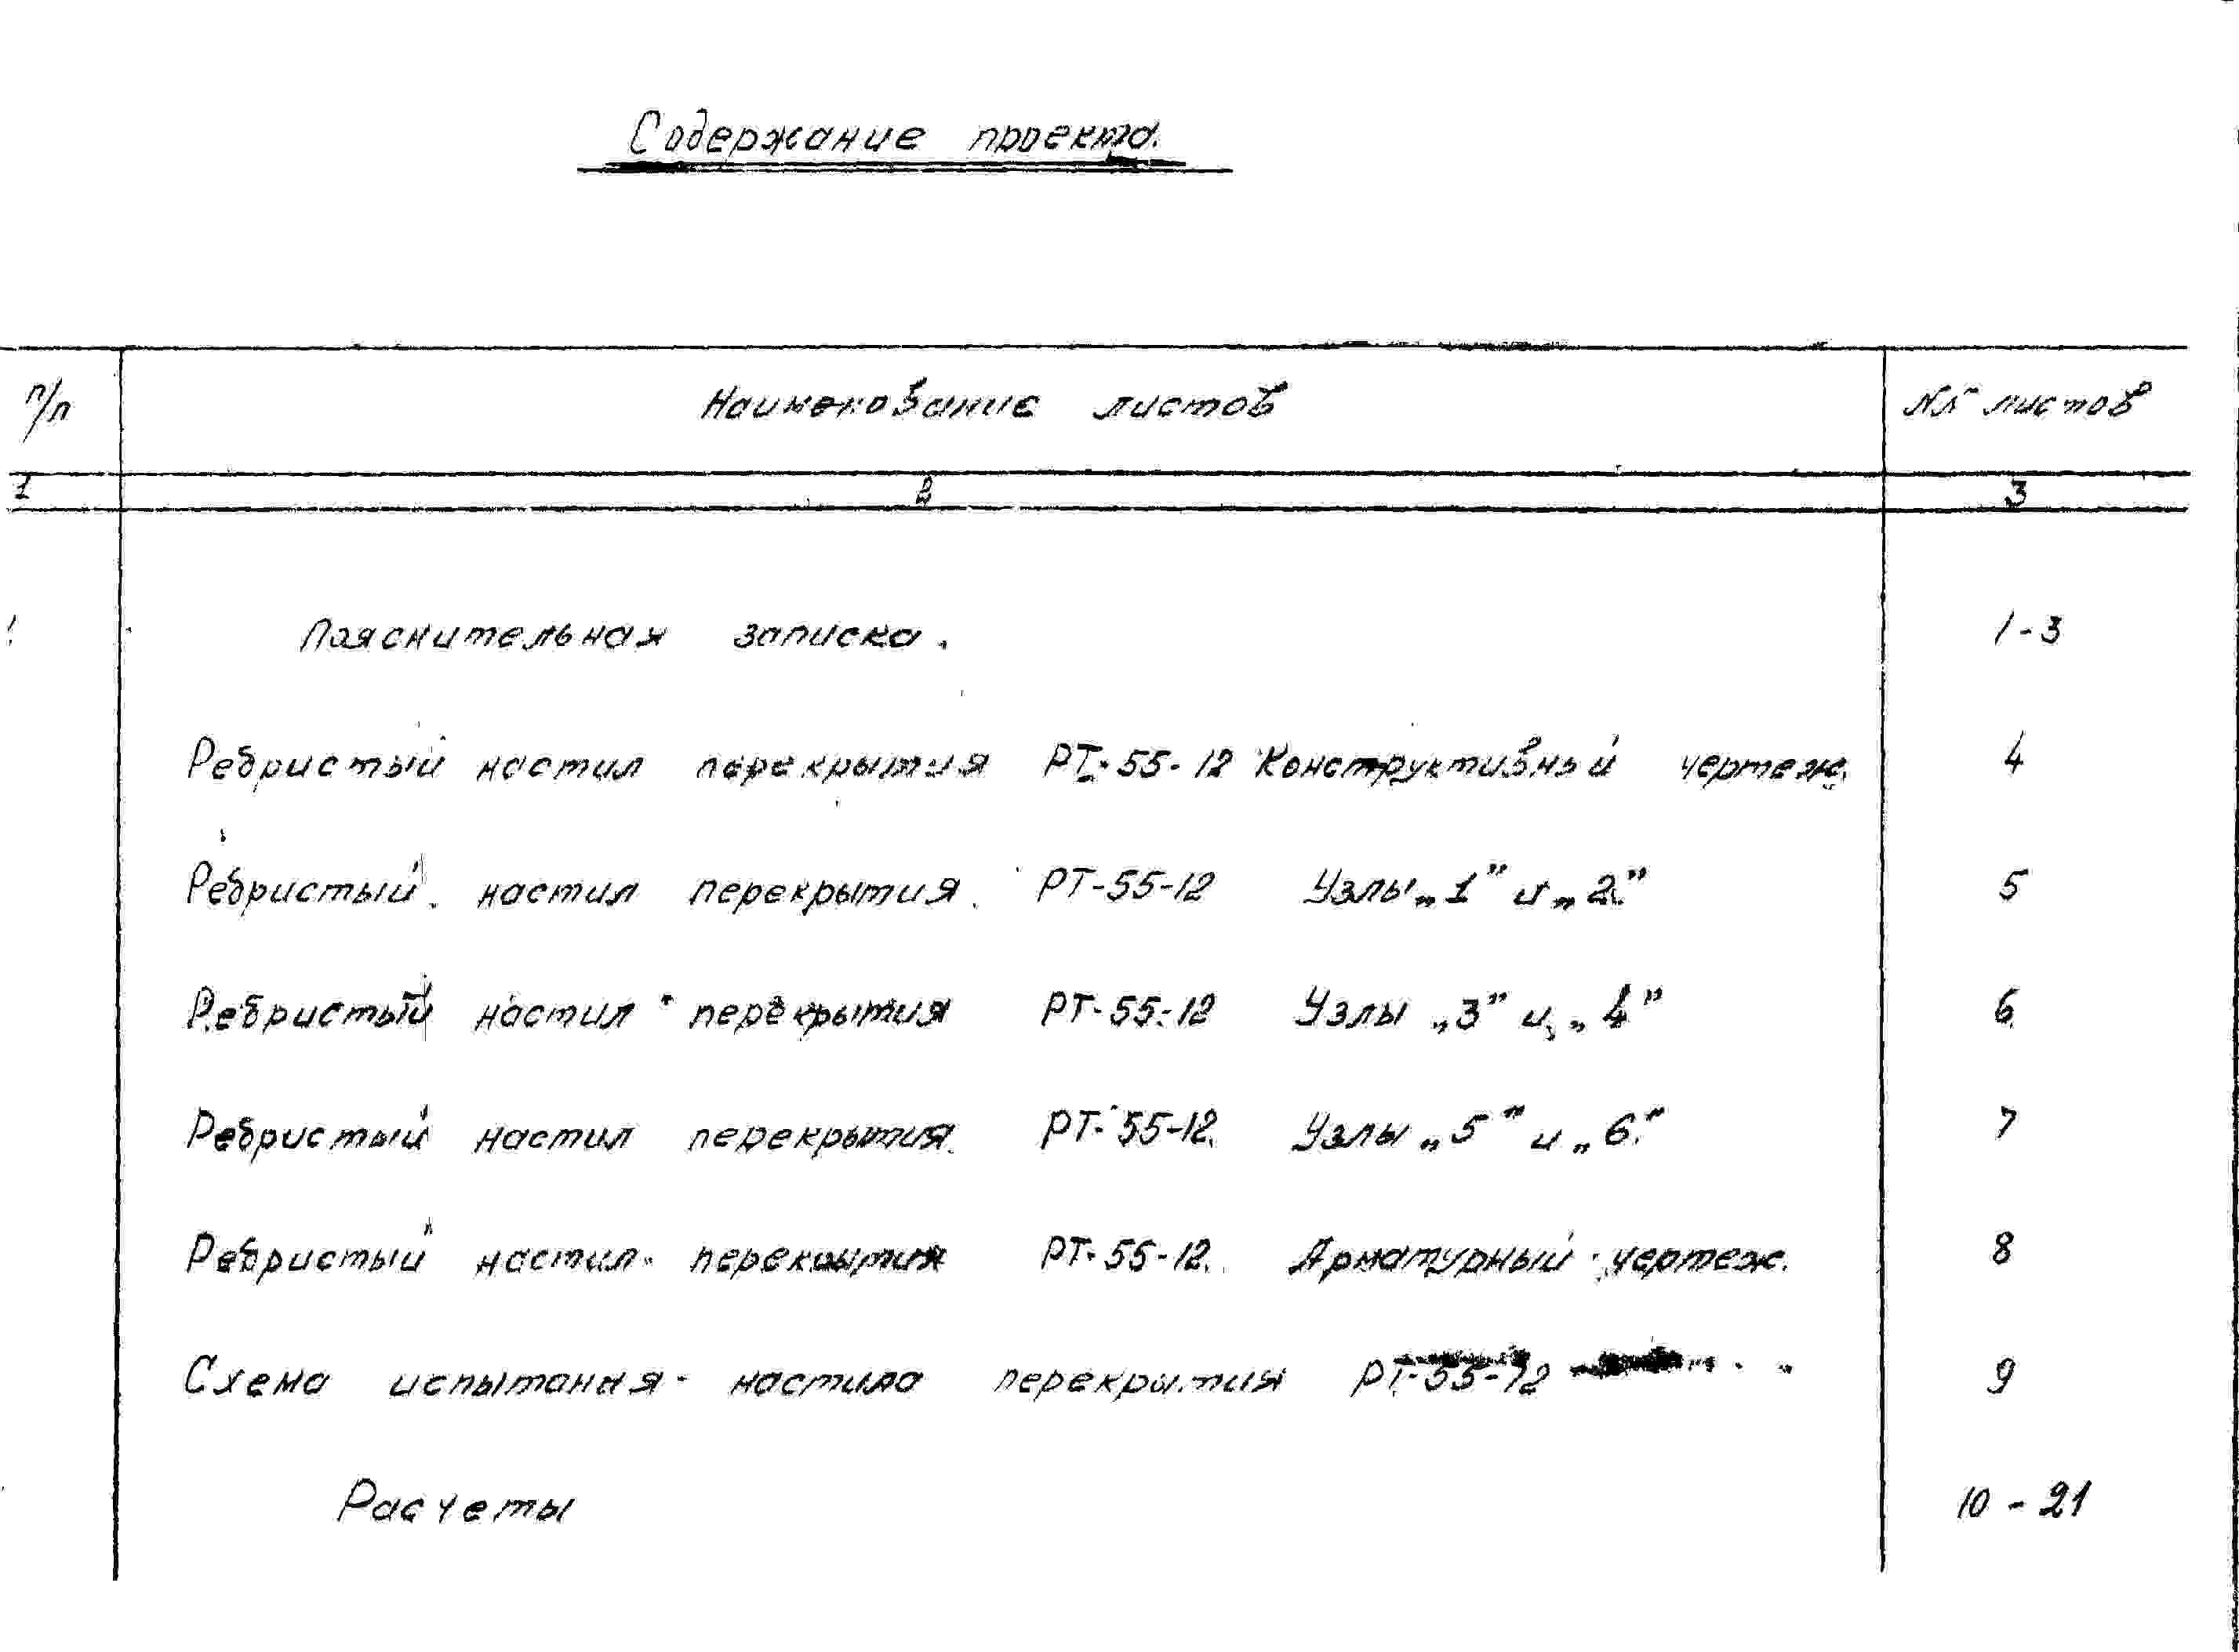 Содержание проекта.
п/п Наименование листов №№ листов
1 2 3
Пояснительная записка. 1-3
Ребристый настил перекрытия РТ-55-12 Конструктивный чертеж. 4
Ребристый настил перекрытия. РТ-55-12 Узлы „1” и „2.” 5
Ребристый настил перекрытия РТ-55-12 Узлы „3” и „4” 6
Ребристый настил перекрытия. РТ-55-12. Узлы „5” и „6.” 7
Ребристый настил перекрытия РТ-55-12. Арматурный чертеж. 8
Схема испытания настила перекрытия РТ-55-12 9
Расчеты 10 - 21